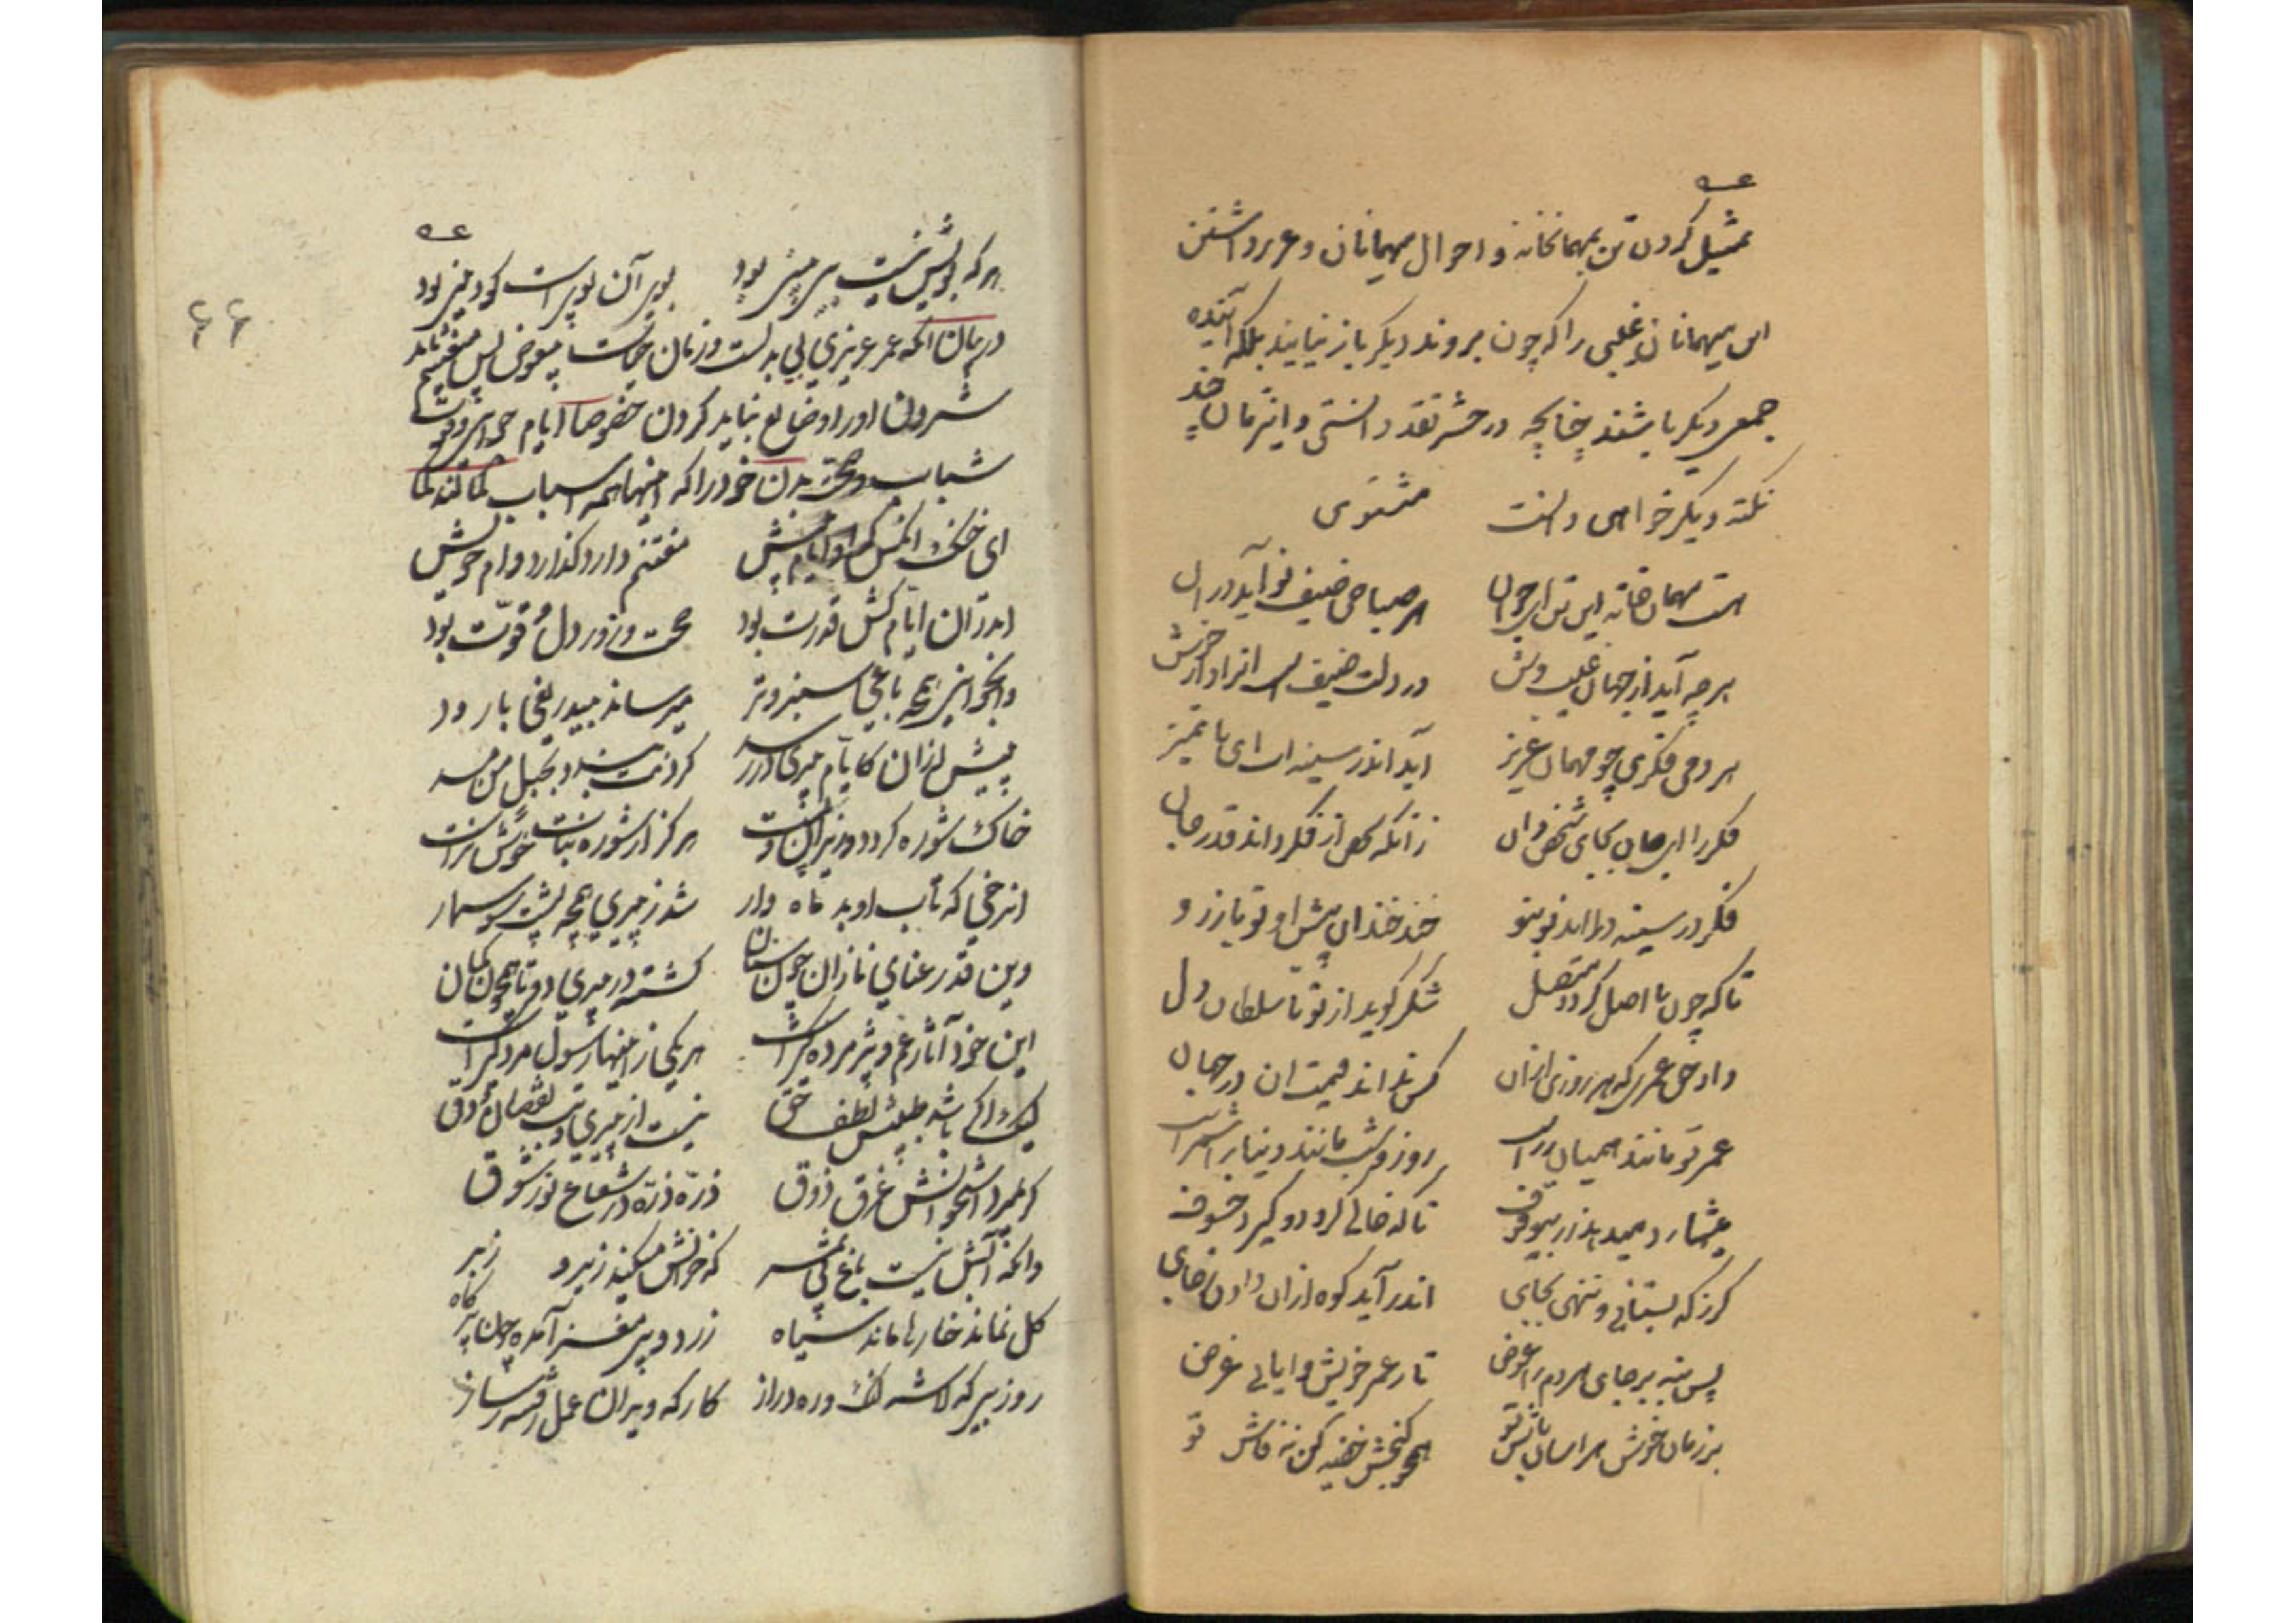 تمثیل کردن تن بمهمانخانه و احوال مهمانان و عزیز داشتن
این میهمانان غلبی را که چون بروند دیگر باز نیایند بلکه آینده
جمعی دیگر باشند چنانچه در حشر نقد دانستی و اینزمان چند
نکته دیگر خواهی دانست مثنوی
هست مهمان خانه این تن ای جوان هر صباحی ضیف نو آید دران
هرچه آید از جهان غیب وش در دلت ضیف است او را دار خوش
هر دمی فکری چو مهمان عزیز آید اندر سینه ات ای با تمیز
فکر را ای جان بجای شخص دان زانکه شخص از فکر داند قدر جان
فکر در سینه در اید نو بنو خند خندان پیش او تو باز رو
تا که چون با اصل گردد متصل شکر گوید از تو با سلطان دل
داد حق عمری که هر روزی ازان کس نداند قیمت ان در جهان
عمر تو مانند همیان زرست روز و شب مانند دینار اشمرست
میشمارد میدهد زر بیوقوف تا که خالی گردد و گیرد خسوف
گر ز که بستانی و ننهی بجای اندر آید کوه ازان دادن ز جای
پس بنه بر جای هر دم را عوض تا ز عمر خویش وایابی غرض
بر زمان خوش هراسان باش تو همچو گنجش خفیه کن نه فاش تو
۶۶
هر که پویش نیست پس پیش بود پیر آن پیر است کو در خیر بود
در بیان انکه عمر عزیزی بی بدلست و زمان حیات بیعوض پس مغتنم باید
شمردن او را و ضایع نباید کردن خصوصا ایام جوانی و قوت
شباب و صحت بدن خود را که اینها همه اسباب
ای خنک انکس که او ایام پیش مغتنم دارد گذارد وام خویش
اندران ایام کش قدرت بود صحت و زور دل و قوت بود
وانجوانی همچو باغی سبز و تر میرساند بیدریغی بار و بر
پیش ازان کایام پیری در رسد گردنت بندد بحبل من مسد
خاک شوره گردد و ریزان و سست هرگز از شوره نبات خوش نرست
ان رخی که تاب او بد ماه وار شد ز پیری همچو پشت سوسمار
وین قد رعنای نازان چون سنان گشته در پیری دو تا همچون کمان
این خود آثار غم و پژمردگیست هر یکی ز اینها رسول مردگیست
لیک اگر باشد طبیبش لطف حق نیست از پیری و تب نقصان و دق
گر بمیرد استخوانش غرق ذوق ذره ذره در شعاع نور شوق
وانکه آنش نیست باغ بی ثمر که خزانش میکند زیر و زبر
گل نماند خارها ماند سیاه زرد و بی مغز آمده چون پر کاه
روز بیگه لاشه لنگ و ره دراز کارگه ویران عمل رفته ز ساز